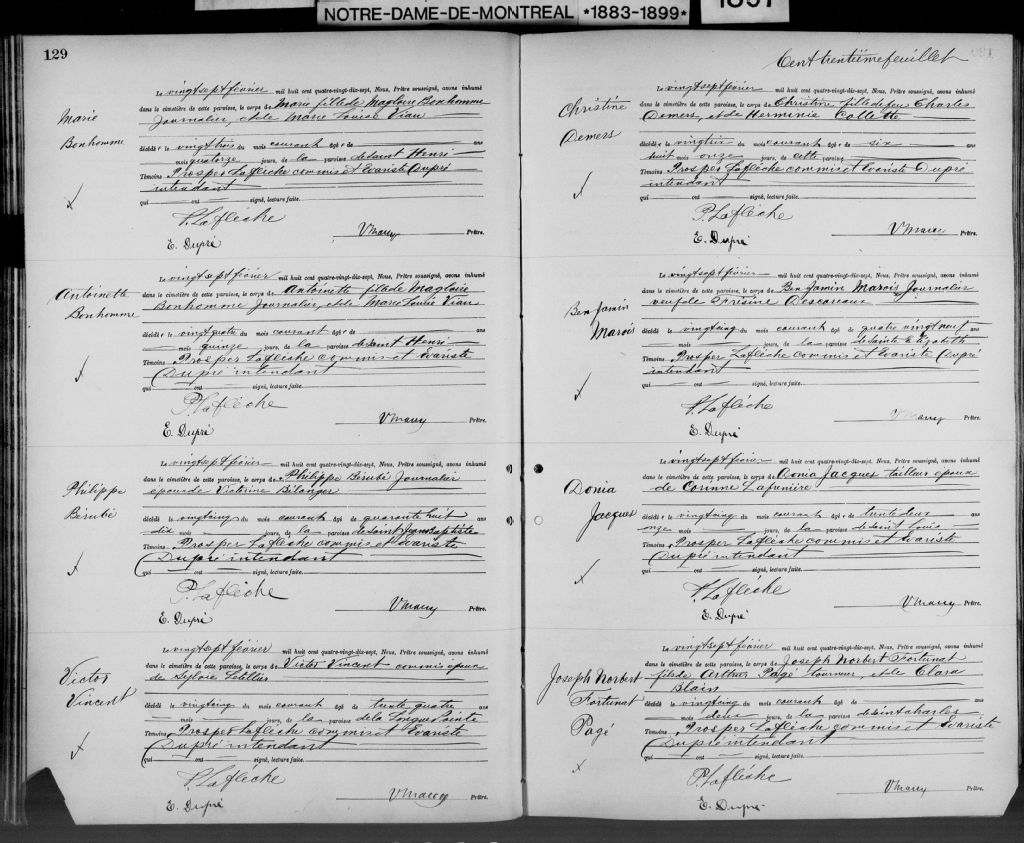 NOTRE-DAME-DE-MONTREAL *1883-1899*
1897
129
Marie
Bonhomme
Le vingt sept février mil huit cent quatre-vingt-dix-sept, Nous, Prêtre soussigné, avons inhumé
dans le cimetière de cette paroisse, le corps de Marie fille de Magloire Bonhomme
Journalier, et de Marie Louise Viau
décédée le vingt trois du mois courant âgée de ans
mois quatorze jours, de la paroisse de Saint Henri
Témoins Prosper Laflèche commis et Evariste Dupré
intendant
qui ont signé, lecture faite.
P. Laflèche
V Maury Prêtre.
E. Dupré
Antoinette
Bonhomme
Le vingt sept février mil huit cent quatre-vingt-dix-sept, Nous, Prêtre soussigné, avons inhumé
dans le cimetière de cette paroisse, le corps de Antoinette fille de Magloire
Bonhomme Journalier, et de Marie Louise Viau
décédée le vingt quatre du mois courant âgée de ans
mois quinze jours, de la paroisse de Saint Henri
Témoins Prosper Laflèche commis et Evariste
Dupré intendant
qui ont signé, lecture faite.
P. Laflèche
V Maury Prêtre.
E. Dupré
Philippe
Bérubé
Le vingt sept février mil huit cent quatre-vingt-dix-sept, Nous, Prêtre soussigné, avons inhumé
dans le cimetière de cette paroisse, le corps de Philippe Bérubé Journalier
époux de Victorine Bélanger
décédé le vingt cinq du mois courant âgé de quarante huit ans
dix mois jours, de la paroisse de Saint Jean Baptiste
Témoins Prosper Laflèche commis et Evariste
Dupré intendant
qui ont signé, lecture faite.
P. Laflèche
V Maury Prêtre.
E. Dupré
Victor
Vincent
Le vingt sept février mil huit cent quatre-vingt-dix-sept, Nous, Prêtre soussigné, avons inhumé
dans le cimetière de cette paroisse, le corps de Victor Vincent commis époux
de Sylvie Letellier
décédé le vingt cinq du mois courant âgé de trente quatre ans
mois jours, de la paroisse de la Longue Pointe
Témoins Prosper Laflèche commis et Evariste
Dupré intendant
qui ont signé, lecture faite.
P. Laflèche
V Maury Prêtre.
E. Dupré
Cent trentième feuillet
Christine
Demers
Le vingt sept février mil huit cent quatre-vingt-dix-sept, Nous, Prêtre soussigné, avons inhumé
dans le cimetière de cette paroisse, le corps de Christine fille de feu Charles
Demers, et de Herminie Collette
décédée le du mois courant âgée de six ans
huit mois onze jours, de cette paroisse
Témoins Prosper Laflèche commis et Evariste Dupré
intendant
qui ont signé, lecture faite.
P. Laflèche
V Maury Prêtre.
E. Dupré
Benjamin
Marois
Le vingt sept février mil huit cent quatre-vingt-dix-sept, Nous, Prêtre soussigné, avons inhumé
dans le cimetière de cette paroisse, le corps de Benjamin Marois Journalier
veuf de
décédé le vingt cinq du mois courant âgé de quatre vingt neuf ans
mois jours, de la paroisse de Sainte Elizabeth
Témoins Prosper Laflèche commis et Evariste Dupré
intendant
qui ont signé, lecture faite.
P. Laflèche
V Maury Prêtre.
E. Dupré
Donia
Jacques
Le vingt sept février mil huit cent quatre-vingt-dix-sept, Nous, Prêtre soussigné, avons inhumé
dans le cimetière de cette paroisse, le corps de Donia Jacques tailleur époux
de Corinne Lafrenière
décédé le vingt cinq du mois courant âgé de trente deux ans
onze mois jours, de la paroisse de Saint Louis
Témoins Prosper Laflèche commis et Evariste
Dupré intendant
qui ont signé, lecture faite.
P. Laflèche
V Maury Prêtre.
E. Dupré
Joseph Norbert
Fortunat
Pagé
Le vingt sept février mil huit cent quatre-vingt-dix-sept, Nous, Prêtre soussigné, avons inhumé
dans le cimetière de cette paroisse, le corps de Joseph Norbert Fortunat
fils de Arthur Pagé tourneur, et de Clara
Blain
décédé le vingt cinq du mois courant âgé de ans
mois deux jours, de la paroisse de Saint Charles
Témoins Prosper Laflèche commis et Evariste
Dupré intendant
qui ont signé, lecture faite.
P. Laflèche
V Maury Prêtre.
E. Dupré